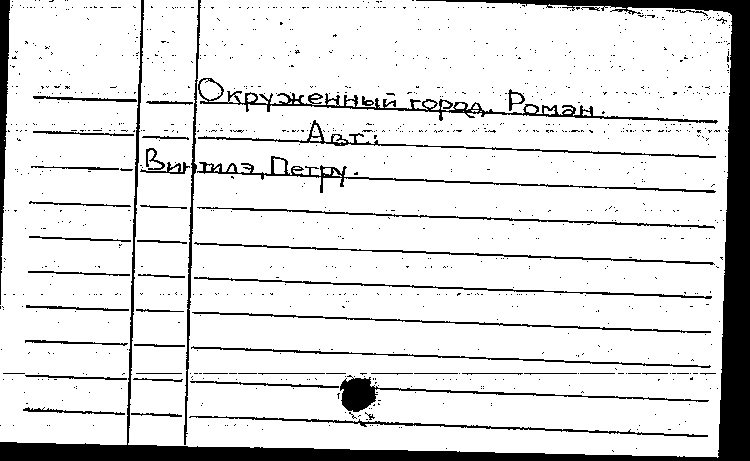 Окруженный город. Роман.
Авт.:
Винтилэ, Петру.